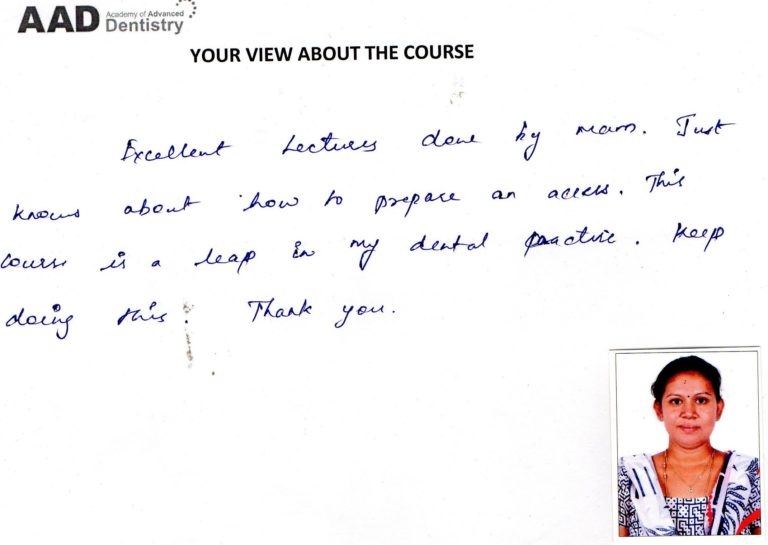 AAD Academy of Advanced
Dentistry
YOUR VIEW ABOUT THE COURSE
Excellent Lectures done by mam. Just
knows about how to prepare an access. This
course is a leap in my dental practice. Keep
doing this. Thank you.